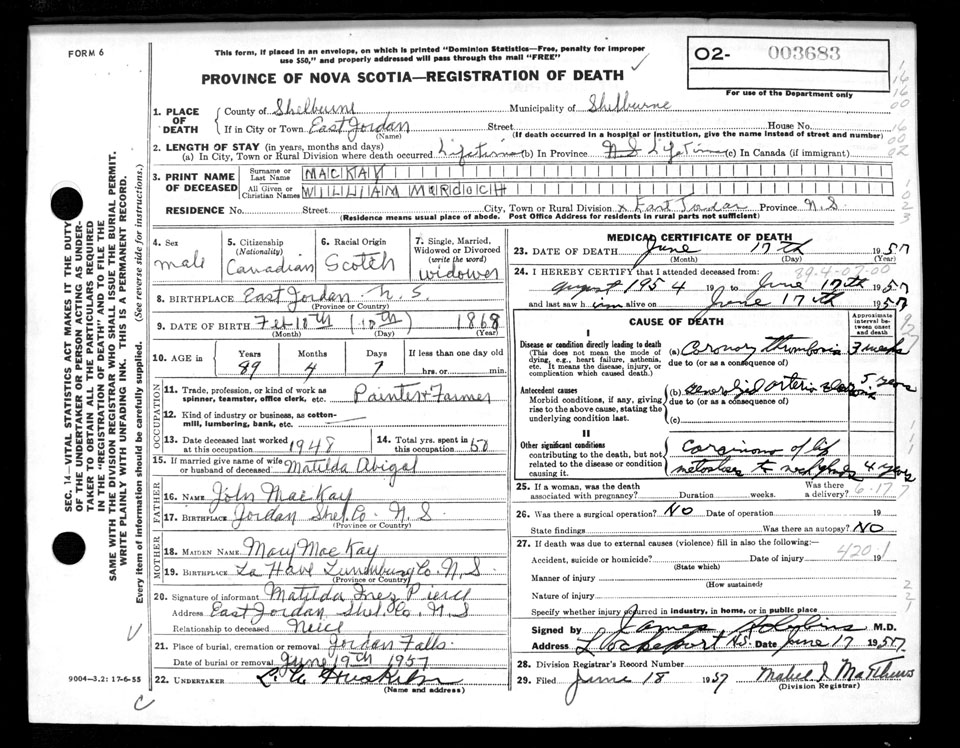 FORM 6
This form, if placed in an envelope, on which is printed "Dominion Statistics—Free, penalty for improper
use $50," and properly addressed will pass through the mail "FREE"
PROVINCE OF NOVA SCOTIA—REGISTRATION OF DEATH
02- 003683
For use of the Department only
1. PLACE OF DEATH
County of Shelburne Municipality of Shelburne
If in City or Town East Jordan Street House No.
(Name) (If death occurred in a hospital or institution, give the name instead of street and number)
2. LENGTH OF STAY (in years, months and days)
(a) In City, Town or Rural Division where death occurred Lifetime (b) In Province N.S Lifetime (c) In Canada (if immigrant)
3. PRINT NAME OF DECEASED
Surname or Last Name MACKAY
All Given or Christian Names WILLIAM MURDOCH
RESIDENCE No. Street City, Town or Rural Division x East Jordan Province N.S.
(Residence means usual place of abode. Post Office Address for residents in rural parts not sufficient)
4. Sex male
5. Citizenship (Nationality) Canadian
6. Racial Origin Scotch
7. Single, Married, Widowed or Divorced (write the word) widower
8. BIRTHPLACE East Jordan N.S.
(Province or Country)
9. DATE OF BIRTH Feb 10th (10th) 1868
(Month) (Day) (Year)
10. AGE in Years Months Days If less than one day old
89 4 7 hrs. or min.
OCCUPATION
11. Trade, profession, or kind of work as spinner, teamster, office clerk, etc. Painter & Farmer
12. Kind of industry or business, as cotton-mill, lumbering, bank, etc. —
13. Date deceased last worked at this occupation 1948
14. Total yrs. spent in this occupation 50
15. If married give name of wife or husband of deceased Matilda Abigal
FATHER
16. NAME John MacKay
17. BIRTHPLACE Jordan Shel. Co. N.S
(Province or Country)
MOTHER
18. MAIDEN NAME Mary MacKay
19. BIRTHPLACE La Have Lunenburg Co. N.S.
(Province or Country)
20. Signature of informant Matilda Inez Pierce
Address East Jordan Shel. Co. N.S
Relationship to deceased Neice
21. Place of burial, cremation or removal Jordan Falls.
Date of burial or removal June 19th 1957
22. UNDERTAKER
(Name and address)
MEDICAL CERTIFICATE OF DEATH
23. DATE OF DEATH June 17th 1957
(Month) (Day)
39.4-07-00
24. I HEREBY CERTIFY that I attended deceased from:
August 1954 19 to June 17th 1957
and last saw him alive on June 17th 1957
CAUSE OF DEATH
Approximate interval between onset and death
I
Disease or condition directly leading to death
(This does not mean the mode of dying, e.g., heart failure, asthenia, etc. It means the disease, injury, or complication which caused death.)
(a) Coronary thrombosis 3 weeks
due to (or as a consequence of)
Antecedent causes
Morbid conditions, if any, giving rise to the above cause, stating the underlying condition last.
(b) 5 years
due to (or as a consequence of)
(c)
II
Other significant conditions
contributing to the death, but not related to the disease or condition causing it.
Carcinoma of lip
to neck glands 4 years
25. If a woman, was the death associated with pregnancy? Duration weeks. Was there a delivery?
6.17 7
26. Was there a surgical operation? NO Date of operation 19
State findings Was there an autopsy? NO
27. If death was due to external causes (violence) fill in also the following:
420.1
Accident, suicide or homicide? Date of injury 19
(State which)
Manner of injury
(How sustained)
Nature of injury
Specify whether injury occurred in industry, in home, or in public place
Signed by James M.D.
Address Lockeport N.S. Date June 17 1957
28. Division Registrar's Record Number
29. Filed June 18 1957 Mabel I. Matthews
(Division Registrar)
9004—3.2: 17-6-55
SEC. 14—VITAL STATISTICS ACT MAKES IT THE DUTY
OF THE UNDERTAKER OR PERSON ACTING AS UNDER-
TAKER TO OBTAIN ALL THE PARTICULARS REQUIRED
IN THE "REGISTRATION OF DEATH" AND TO FILE THE
SAME WITH THE DIVISION REGISTRAR WHO SHALL ISSUE THE BURIAL PERMIT.
WRITE PLAINLY WITH UNFADING INK. THIS IS A PERMANENT RECORD.
Every item of information should be carefully supplied. (See reverse side for instructions.)